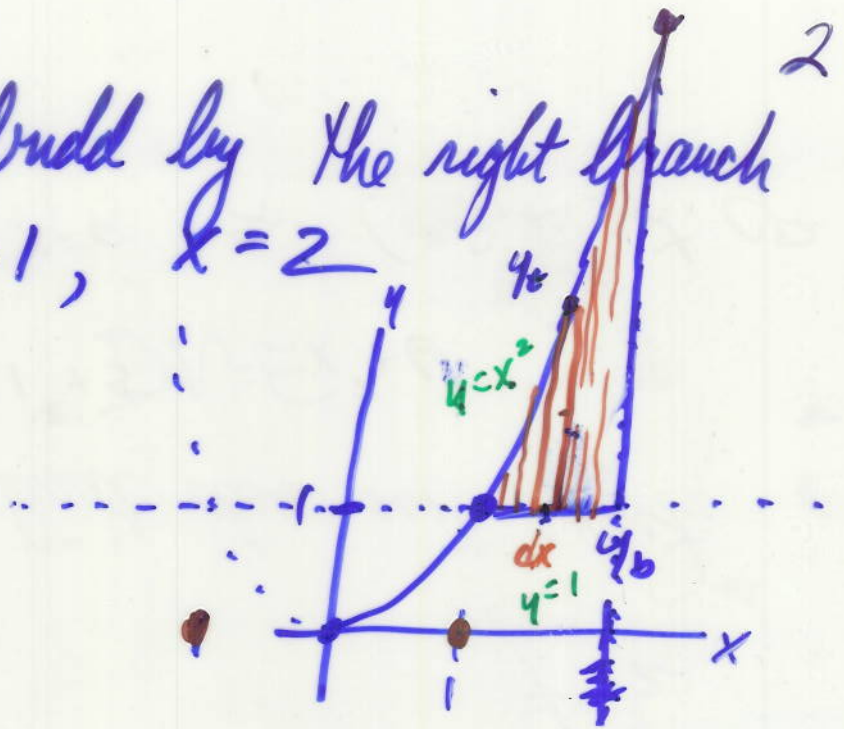 2
by the right branch
1, x = 2
y
y_t
y=x²
1
dx
y_b
y=1
x
1